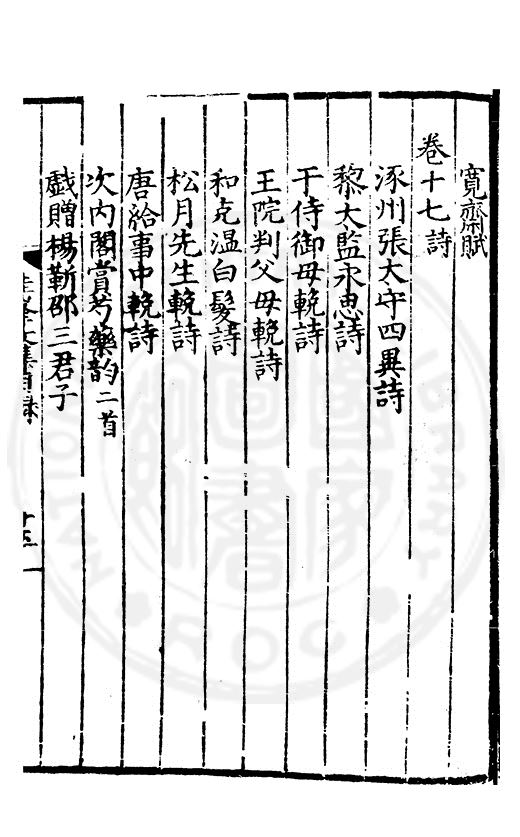 寛齋賦
卷十七詩
涿州張太守四異詩
黎太監永惠詩
于侍御母輓詩
王院判父母輓詩
和克温白髮詩
松月先生輓詩
唐給事中輓詩
次内閣賞芍藥韵二首
戲贈楊靳邵三君子
文集目録
十五